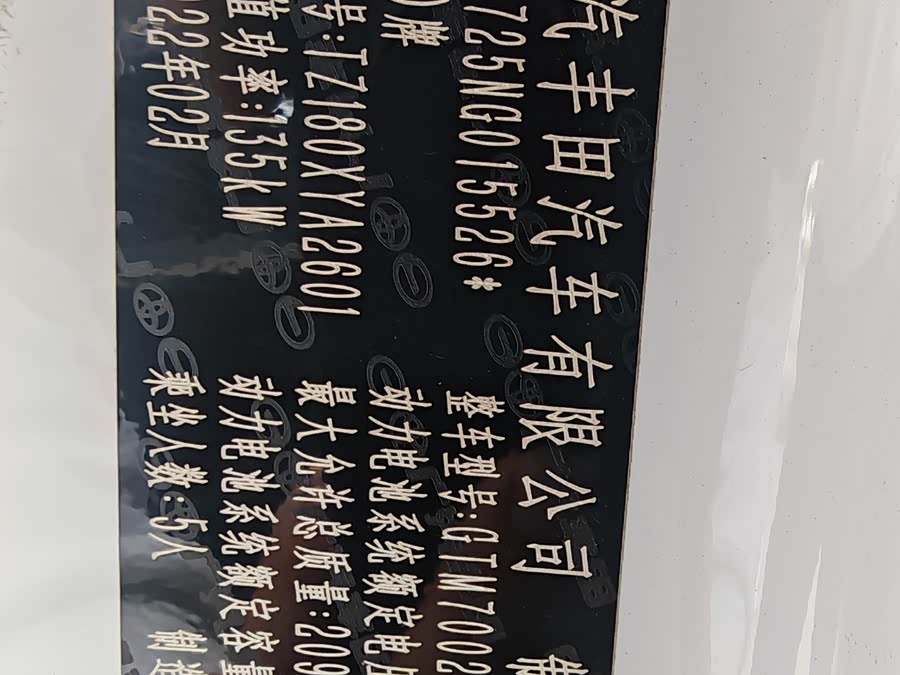 汽丰田汽车有限公司
牌
725NG015526* 整车型号:GTM7002
动力电池系统额定电压
号:TZ180XYA2601 最大允许总质量:209
值功率:135kW 动力电池系统额定容量
22年02月 乘坐人数:5人 制造